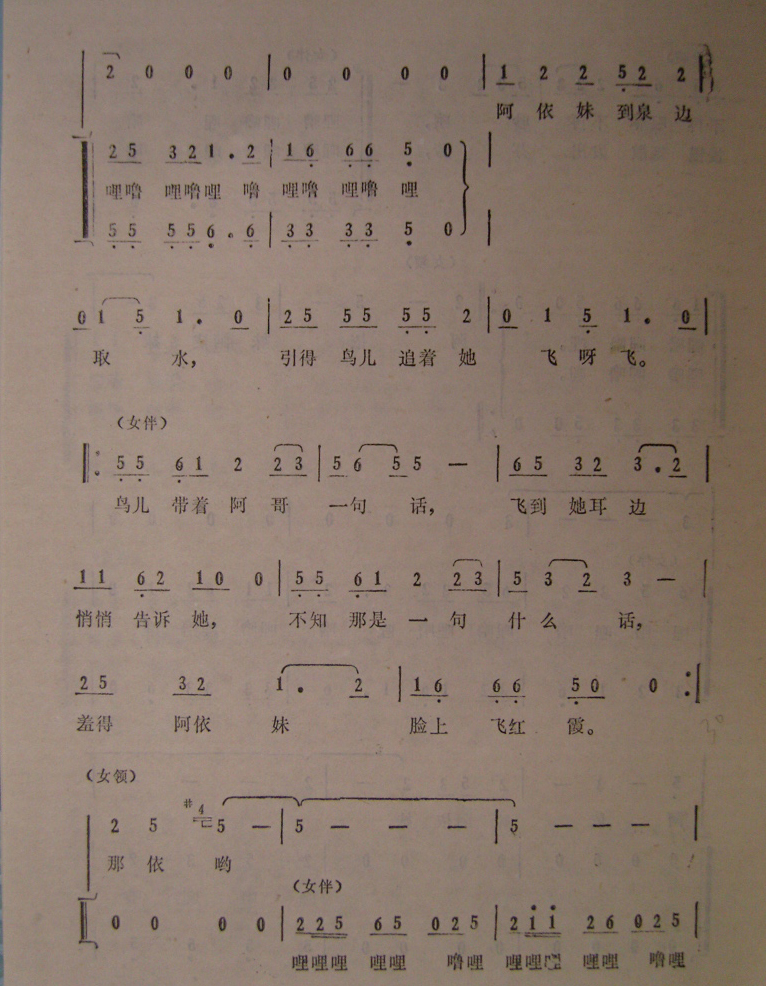 2 0 0 0 | 0 0 0 0 | 1 2 2 5 2 2
阿 依 妹 到泉 边
2 5 3 2 1 . 2 | 1 6 6 6 5 0
哩噜 哩噜哩 噜 哩噜 哩噜 哩
5 5 5 5 6 . 6 | 3 3 3 3 5 0
0 1 5 1 . 0 | 2 5 5 5 5 5 2 | 0 1 5 1 . 0 |
取 水, 引得 鸟儿 追着 她 飞 呀 飞。
(女伴)
5 5 6 1 2 2 3 | 5 6 5 5 — | 6 5 3 2 3 . 2 |
鸟儿 带着 阿 哥 一句 话, 飞到 她耳 边
1 1 6 2 1 0 0 | 5 5 6 1 2 2 3 | 5 3 2 3 —
悄悄 告诉 她, 不知 那是 一 句 什 么 话,
2 5 3 2 1 . 2 | 1 6 6 6 5 0 0 :|
羞得 阿依 妹 脸上 飞红 霞。
(女领)
2 5 #4 5 — | 5 — — — | 5 — — — |
那 依 哟
(女伴)
0 0 0 0 | 2 2 5 6 5 0 2 5 | 2 1 1 2 6 0 2 5 |
哩哩哩 哩哩 噜哩 哩哩哩 哩哩 噜哩